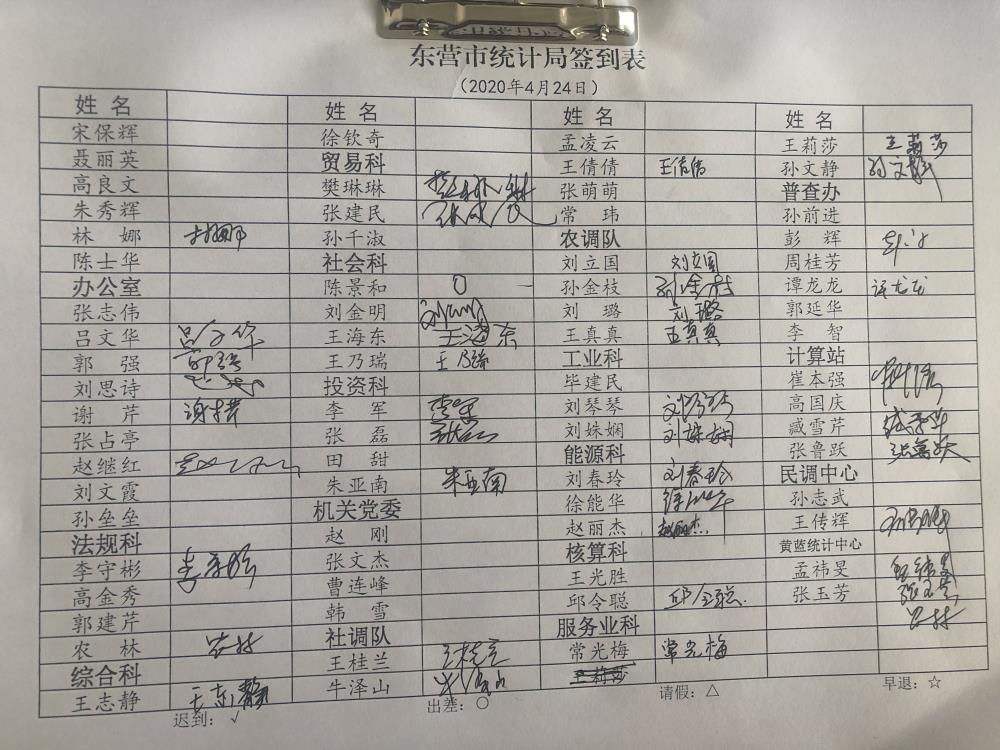 东营市统计局签到表
（2020年4月24日）
姓名 姓名 姓名 姓名
宋保辉 徐钦奇 孟凌云 王莉莎 王莉莎
聂丽英 贸易科 王倩倩 王倩倩 孙文静 孙文静
高良文 樊琳琳 樊琳琳 张萌萌 普查办
朱秀辉 张建民 张建民 常玮 孙前进
林娜 林娜 孙千淑 农调队 彭辉
陈士华 社会科 刘立国 刘立国 周桂芳
办公室 陈景和 〇 孙金枝 孙金枝 谭龙龙 谭龙龙
张志伟 刘金明 刘璐 刘璐 郭延华
吕文华 吕文华 王海东 王海东 王真真 王真真 李智
郭强 郭强 王乃瑞 王乃瑞 工业科 计算站
刘思诗 投资科 毕建民 崔本强
谢芹 谢芹 李军 李军 刘琴琴 刘琴琴 高国庆
张占亭 张磊 刘姝娴 刘姝娴 臧雪芹
赵继红 田甜 能源科 张鲁跃 张鲁跃
刘文霞 朱亚南 朱亚南 刘春玲 刘春玲 民调中心
孙垒垒 机关党委 徐能华 孙志武
法规科 赵刚 赵丽杰 赵丽杰 王传辉
李守彬 张文杰 核算科 黄蓝统计中心
高金秀 曹连峰 王光胜 孟祎旻
郭建芹 韩雪 邱令聪 邱令聪 张玉芳 张玉芳
农林 农林 社调队 服务业科 农林
综合科 王桂兰 王桂兰 常光梅 常光梅
王志静 牛泽山 王莉莎
迟到：√ 出差：〇 请假：△ 早退：☆